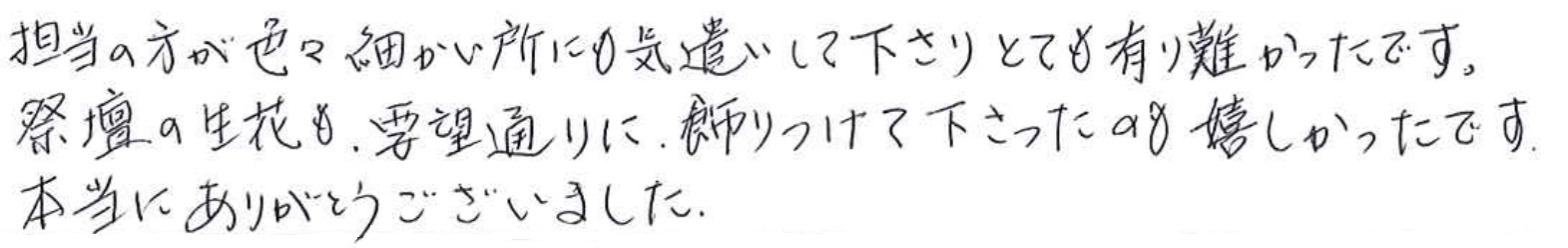 担当の方が色々細かい所にも気遣いして下さりとても有り難かったです。
祭壇の生花も、要望通りに、飾りつけて下さったのも嬉しかったです.
本当にありがとうございました.